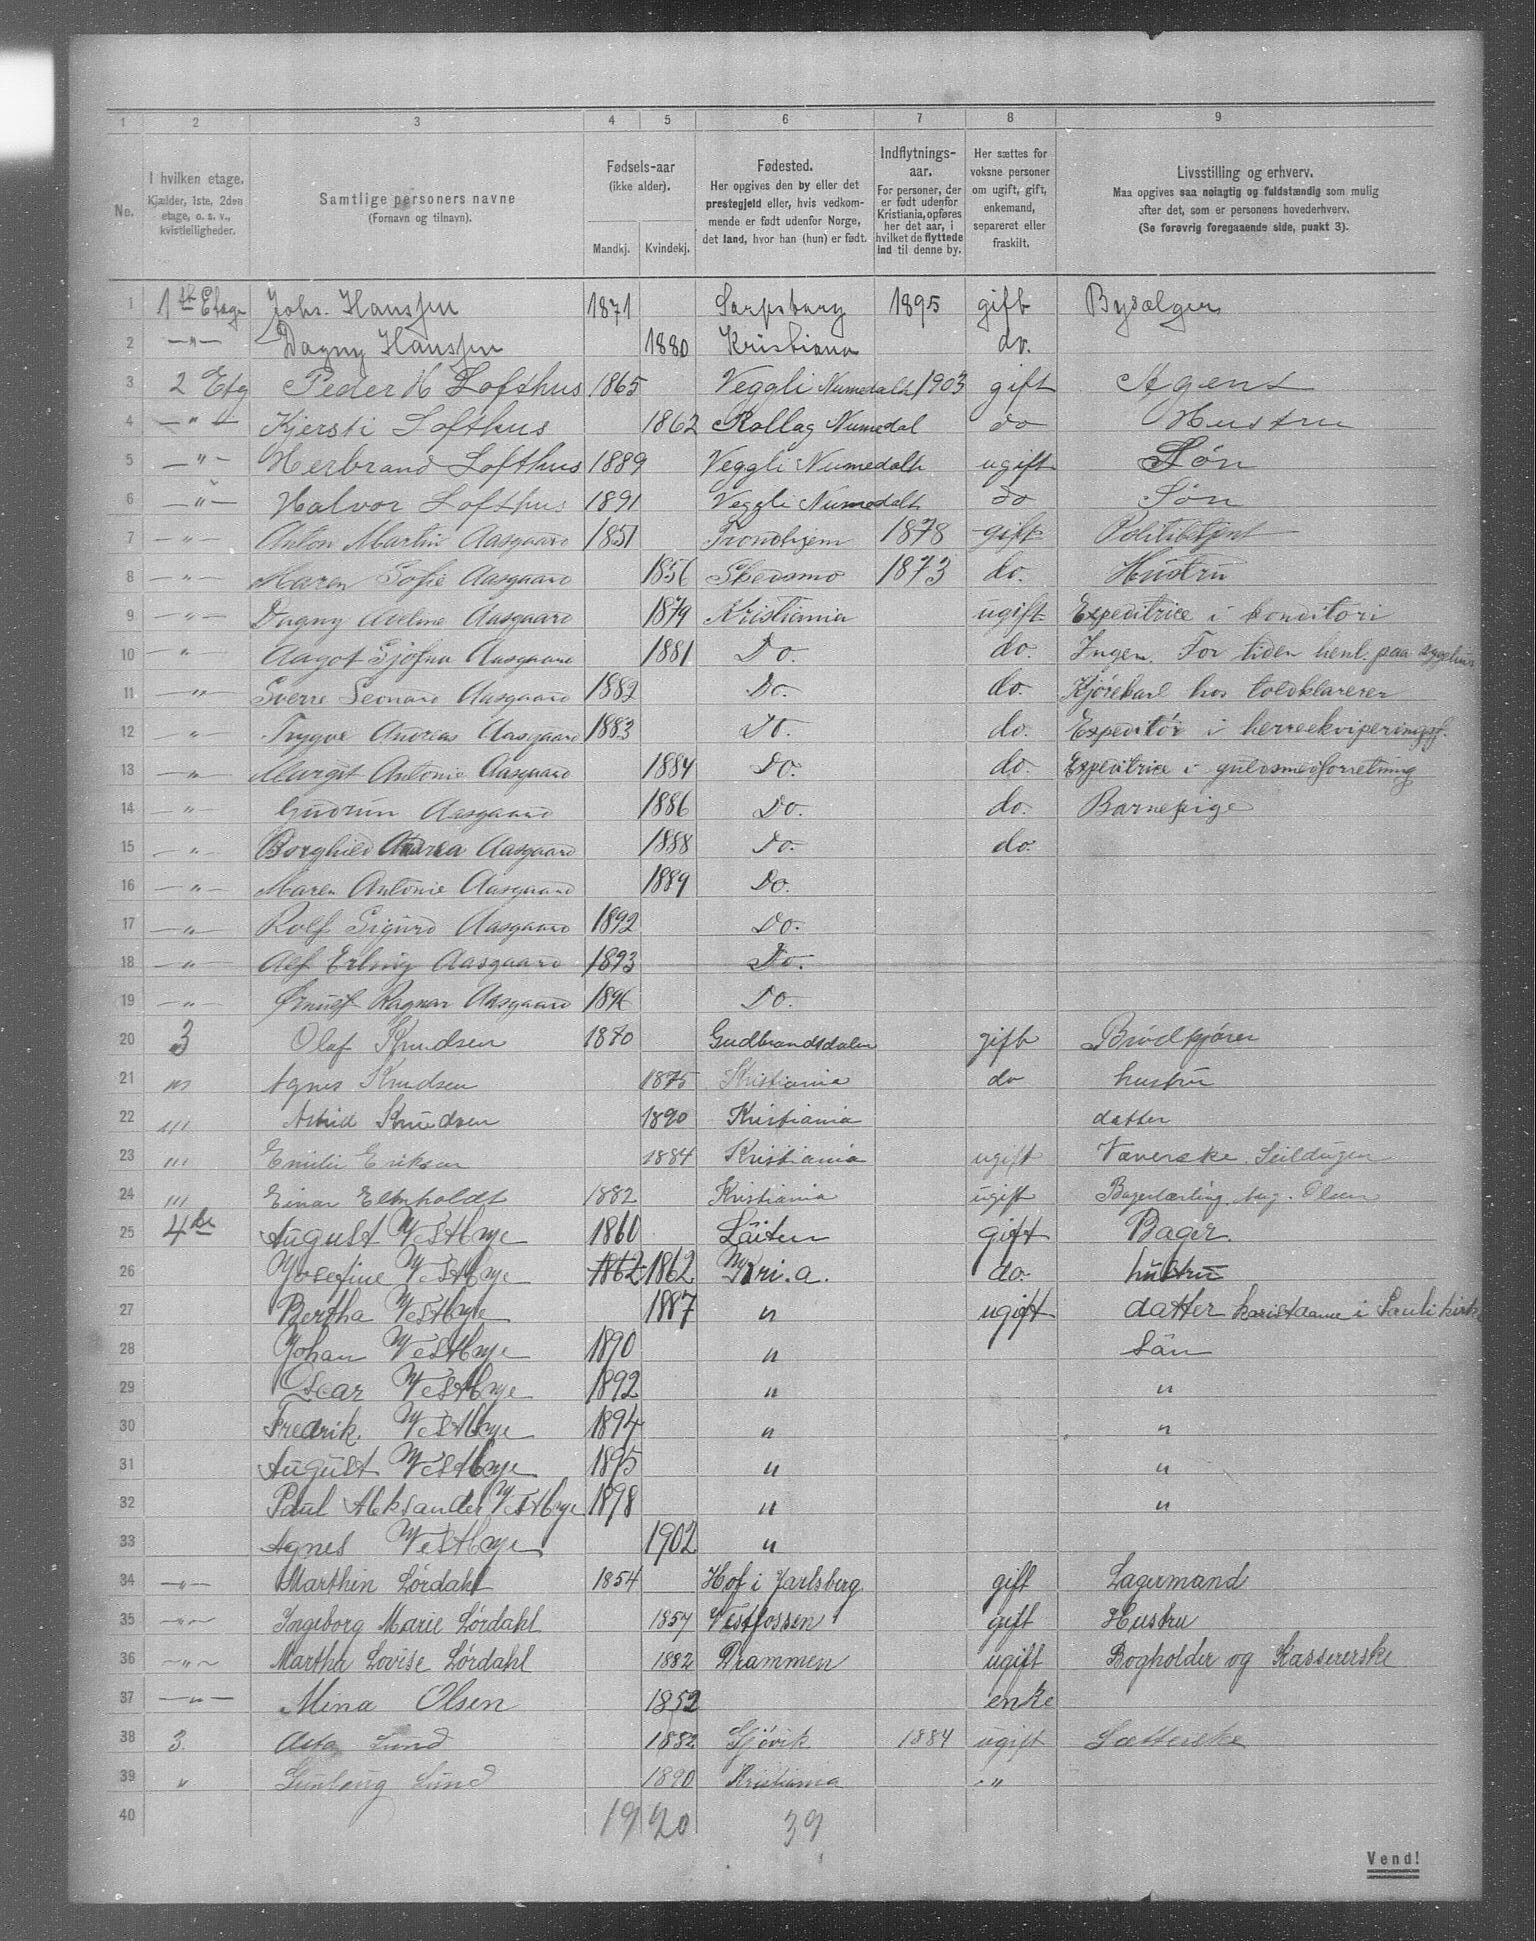 1 2 3 4 5 6 7 8 9
No. I hvilken etage. Kjælder, 1ste, 2den etage, o. s. v., kvistleiligheder. Samtlige personers navne (Fornavn og tilnavn). Fødsels-aar (ikke alder). Mandkj. Kvindekj. Fødested. Her opgives den by eller det prestegjeld eller, hvis vedkommende er født udenfor Norge, det land, hvor han (hun) er født. Indflytnings-aar. For personer, der er født udenfor Kristiania, opføres her det aar, i hvilket de flyttede ind til denne by. Her sættes for voksne personer om ugift, gift, enkemand, separeret eller fraskilt. Livsstilling og erhverv. Maa opgives saa nøiagtig og fuldstændig som mulig efter det, som er personens hovederhverv. (Se forøvrig foregaaende side, punkt 3).
1 1ste Etage Johs. Hanssen 1871 Sarpsborg 1895 gift Bysælger
2 —"— Dagny Hanssen 1880 Kristiana do.
3 2 Etg Peder H Lofthus 1865 Veggli Numedalh 1903 gift Agent
4 —"— Kjersti Lofthus 1862 Rollag Numedal do Hustru
5 —"— Herbrand Lofthus 1889 Veggli Numedalh ugift Søn
6 —"— Halvor Lofthus 1891 Veggli Numedalh do Søn
7 —"— Anton Martin Aasgaard 1851 Trondhjem 1878 gift Politibtjnt
8 —"— Maren Sofie Aasgaard 1856 Skedsmo 1873 do. Hustru
9 —"— Dagny Aveline Aasgaard 1879 Kristiania ugift Expeditrice i konditori
10 —"— Aagot Gjøfna Aasgaard 1881 Do. do. Ingen. For tiden henl. paa sygehus
11 —"— Sverre Leonard Aasgaard 1882 Do. do. Kjørekarl hos toldklarerer
12 —"— Trygve Andreas Aasgaard 1883 Do. do. Expeditør i herreekviperingsf.
13 —"— Margit Antonie Aasgaard 1884 Do. do. Expeditrice i guldsmedforretning
14 —"— Gudrun Aasgaard 1886 Do. do. Barnepige
15 —"— Borghild Andrea Aasgaard 1888 Do. do.
16 —"— Maren Antonie Aasgaard 1889 Do.
17 —"— Rolf Sigurd Aasgaard 1892 Do.
18 —"— Alf Erling Aasgaard 1893 Do.
19 —"— Ørnulf Ragnar Aasgaard 1896 Do.
20 3 Olaf Knudsen 1870 Gudbrandsdalen gift Brødkjører
21 "' Agnes Knudsen 1875 Kristiania do hustru
22 "' Astrid Knudsen 1890 Kristiania datter
23 "' Emilie Eriksen 1884 Kristiania ugift Væverske Seildugen
24 "' Einar Elmholdt 1882 Kristiania ugift Bagerlærling Aug. Olsen
25 4de August Westbye 1860 Løiten gift Bager.
26 Josefine Westbye 1862 1862 Kri.a. do. hustru
27 Bertha Westbye 1887 " ugift datter i Pauli kirk
28 Johan Westbye 1890 " Sön
29 Oscar Westbye 1892 " "
30 Fredrik. Westbye 1894 " "
31 August Westbye 1895 " "
32 Paul Aleksander Westbye 1898 " "
33 Agnes Westbye 1902 "
34 —"— Marthin Lørdahl 1854 Hof i Jarlsberg gift Lagermand
35 —"— Ingeborg Marie Lørdahl 1857 Vestfossen gift Hustru
36 —"— Martha Lovise Lørdahl 1882 Drammen ugift Bogholder og Kassererske
37 —"— Mina Olsen 1852 enke
38 3. Asta Lund 1882 Gjøvik 1884 ugift Sætterske
39 " Gunlaug Lund 1890 Kristiania "
40 19 20 39
Vend!